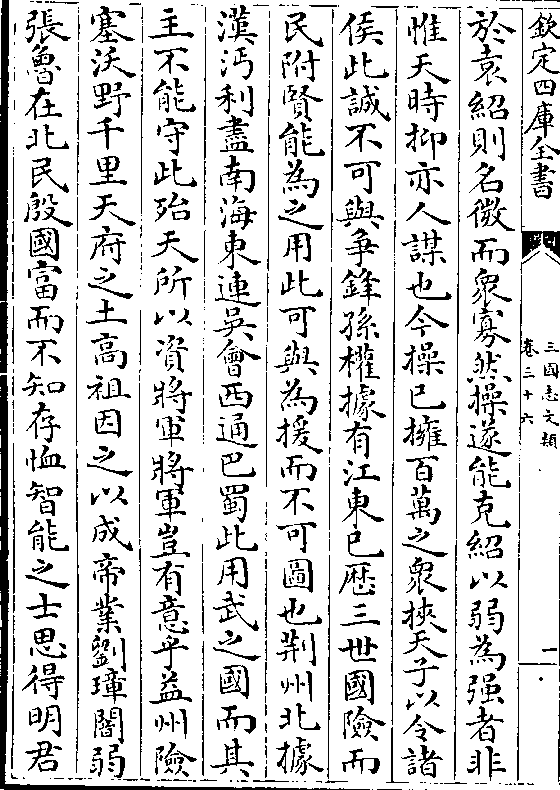 欽定四庫全書
三國志文類
卷三十六
一
於袁紹則名微而衆寡然操遂能克紹以弱為强者非
惟天時抑亦人謀也今操已擁百萬之衆挾天子以令諸
侯此誠不可與争鋒孫權據有江東已歷三世國險而
民附賢能為之用此可與為援而不可圖也荆州北據
漢沔利盡南海東連吳會西通巴蜀此用武之國而其
主不能守此殆天所以資將軍將軍豈有意乎益州險
塞沃野千里天府之土高祖因之以成帝業劉璋闇弱
張魯在北民殷國富而不知存恤智能之士思得明君